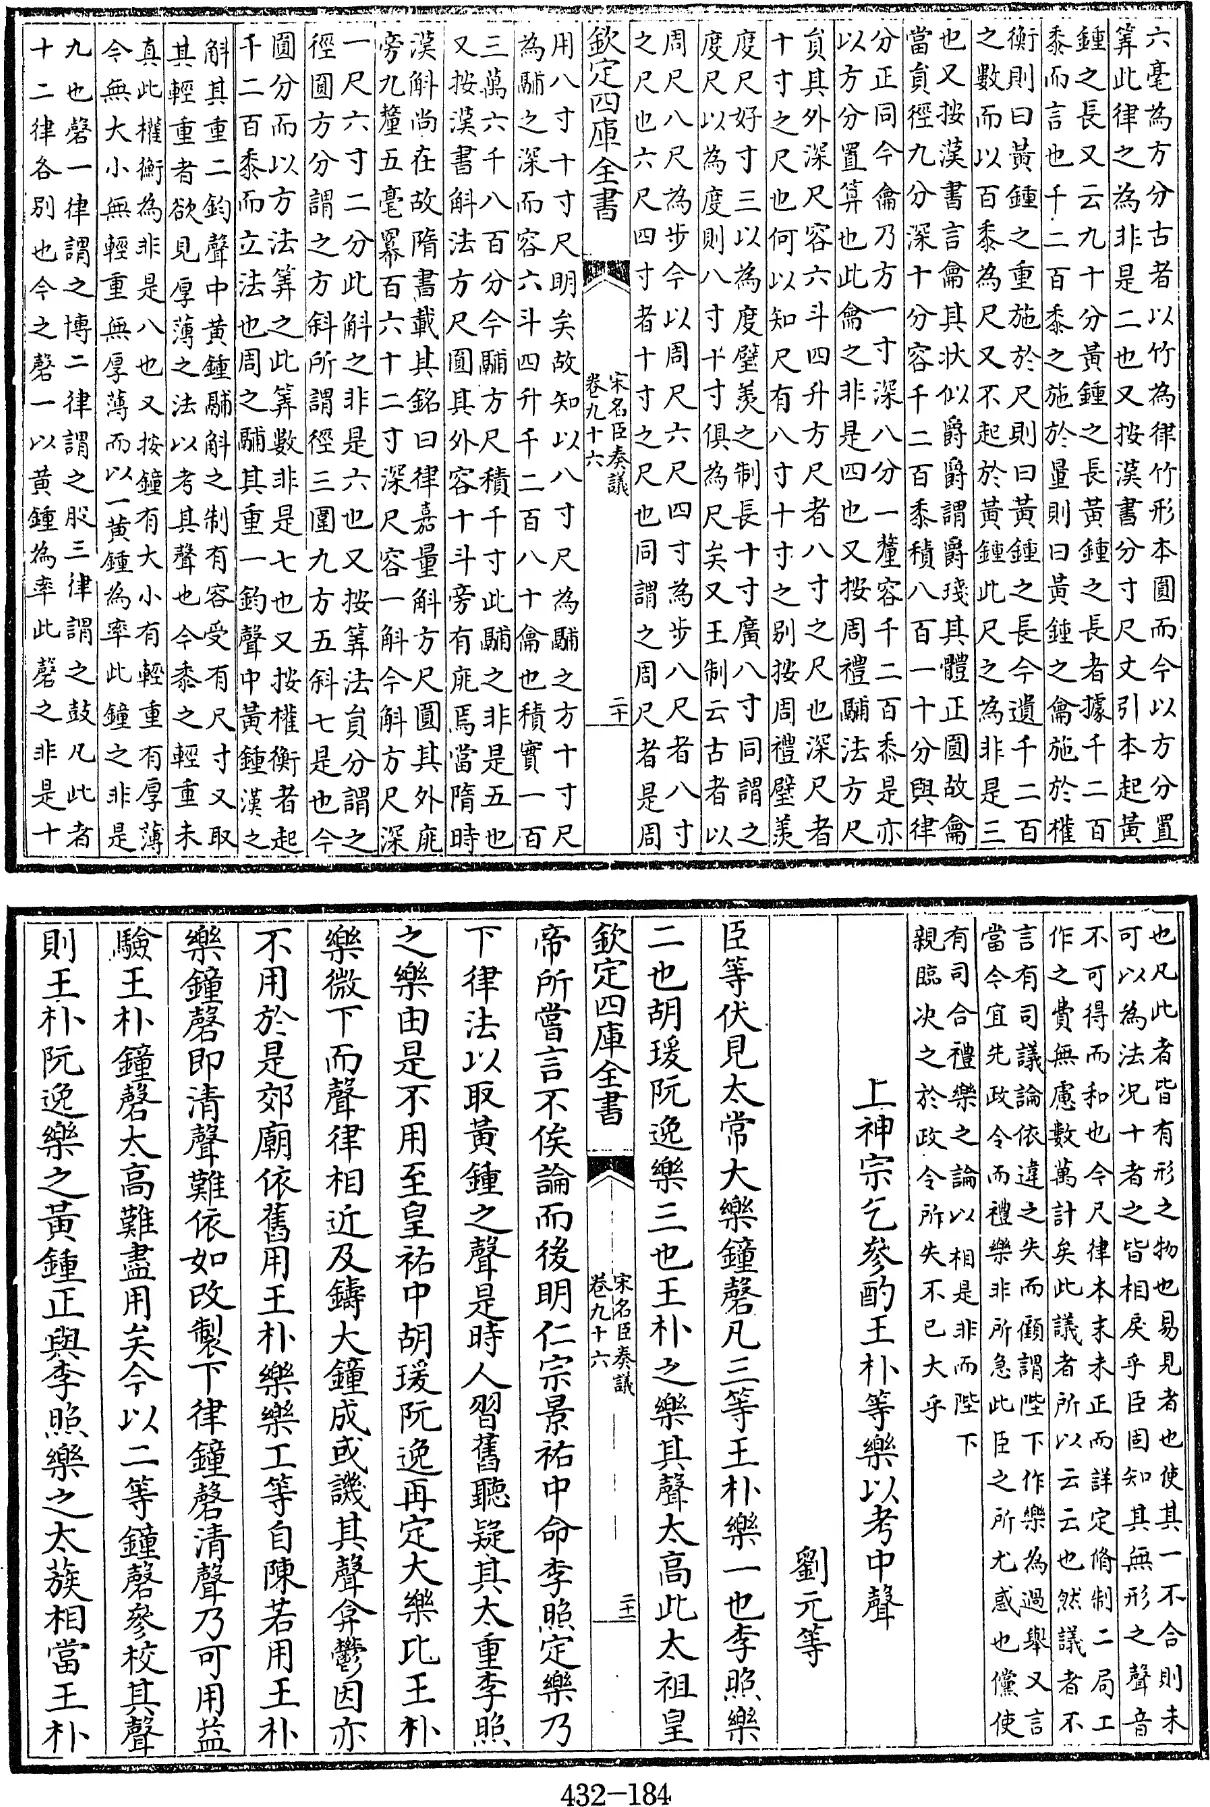 六毫為方分古者以竹為律竹形本圓而今以方分置
筭此律之為非是二也又按漢書分寸尺丈引本起黃
鍾之長又云九十分黃鍾之長黃鍾之長者據千二百
黍而言也千二百黍之施於量則曰黃鍾之龠施於權
衡則曰黃鍾之重施於尺則曰黃鍾之長今遺千二百
之數而以百黍為尺又不起於黃鍾此尺之為非是三
也又按漢書言龠其狀似爵爵謂爵琖其體正圓故龠
當員徑九分深十分容千二百黍積八百一十分與律
分正同今龠乃方一寸深八分一釐容千二百黍是亦
以方分置算也此龠之非是四也又按周禮鬴法方尺
員其外深尺容六斗四升方尺者八寸之尺也深尺者
十寸之尺也何以知尺有八寸十寸之别按周禮璧羡
度尺好寸三以為度璧羡之制長十寸廣八寸同謂之
度尺以為度則八寸十寸俱為尺矣又王制云古者以
周尺八尺為步今以周尺六尺四寸為步八尺者八寸
之尺也六尺四寸者十寸之尺也同謂之周尺者是周
欽定四庫全書
宋名臣奏議
卷九十六
二十
用八寸十寸尺明矣故知以八寸尺為鬴之方十寸尺
為鬴之深而容六斗四升千二百八十龠也積實一百
三萬六千八百分今鬴方尺積千寸此鬴之非是五也
又按漢書斛法方尺圓其外容十斗旁有庣焉當隋時
漢斛尚在故隋書載其銘曰律嘉量斛方尺圓其外庣
旁九釐五毫冪百六十二寸深尺容一斛今斛方尺深
一尺六寸二分此斛之非是六也又按筭法員分謂之
徑圓方分謂之方斜所謂徑三圍九方五斜七是也今
圓分而以方法筭之此筭數非是七也又按權衡者起
千二百黍而立法也周之鬴其重一鈞聲中黃鍾漢之
斛其重二鈞聲中黃鍾鬴斛之制有容受有尺寸又取
其輕重者欲見厚薄之法以考其聲也今黍之輕重未
真此權衡為非是八也又按鐘有大小有輕重有厚薄
今無大小無輕重無厚薄而以一黃鍾為率此鐘之非是
九也磬一律謂之博二律謂之股三律謂之鼓凡此者
十二律各别也今之磬一以黃鍾為率此磬之非是十
也凡此者皆有形之物也易見者也使其一不合則未
可以為法況十者之皆相戾乎臣固知其無形之聲音
不可得而和也今尺律本末未正而詳定脩制二局工
作之費無慮數萬計矣此議者所以云云也然議者不
言有司議論依違之失而顧謂陛下作樂為過舉又言
當今宜先政令而禮樂非所急此臣之所尤惑也儻使
有司合禮樂之論以相是非而陛下
親臨決之於政令所失不已大乎
上神宗乞參酌王朴等樂以考中聲
劉元等
臣等伏見太常大樂鐘磬凡三等王朴樂一也李照樂
二也胡瑗阮逸樂三也王朴之樂其聲太高此太祖皇
欽定四庫全書
宋名臣奏議
卷九十六
二十一
帝所嘗言不俟論而後明仁宗景祐中命李照定樂乃
下律法以取黃鍾之聲是時人習舊聽疑其太重李照
之樂由是不用至皇祐中胡瑗阮逸再定大樂比王朴
樂微下而聲律相近及鑄大鐘成或譏其聲弇鬱因亦
不用於是郊廟依舊用王朴樂樂工等自陳若用王朴
樂鐘磬即清聲難依如改製下律鐘磬清聲乃可用益
驗王朴鐘磬太高難盡用矣今以二等鐘磬參校其聲
則王朴阮逸樂之黃鍾正與李照樂之太蔟相當王朴
432-184